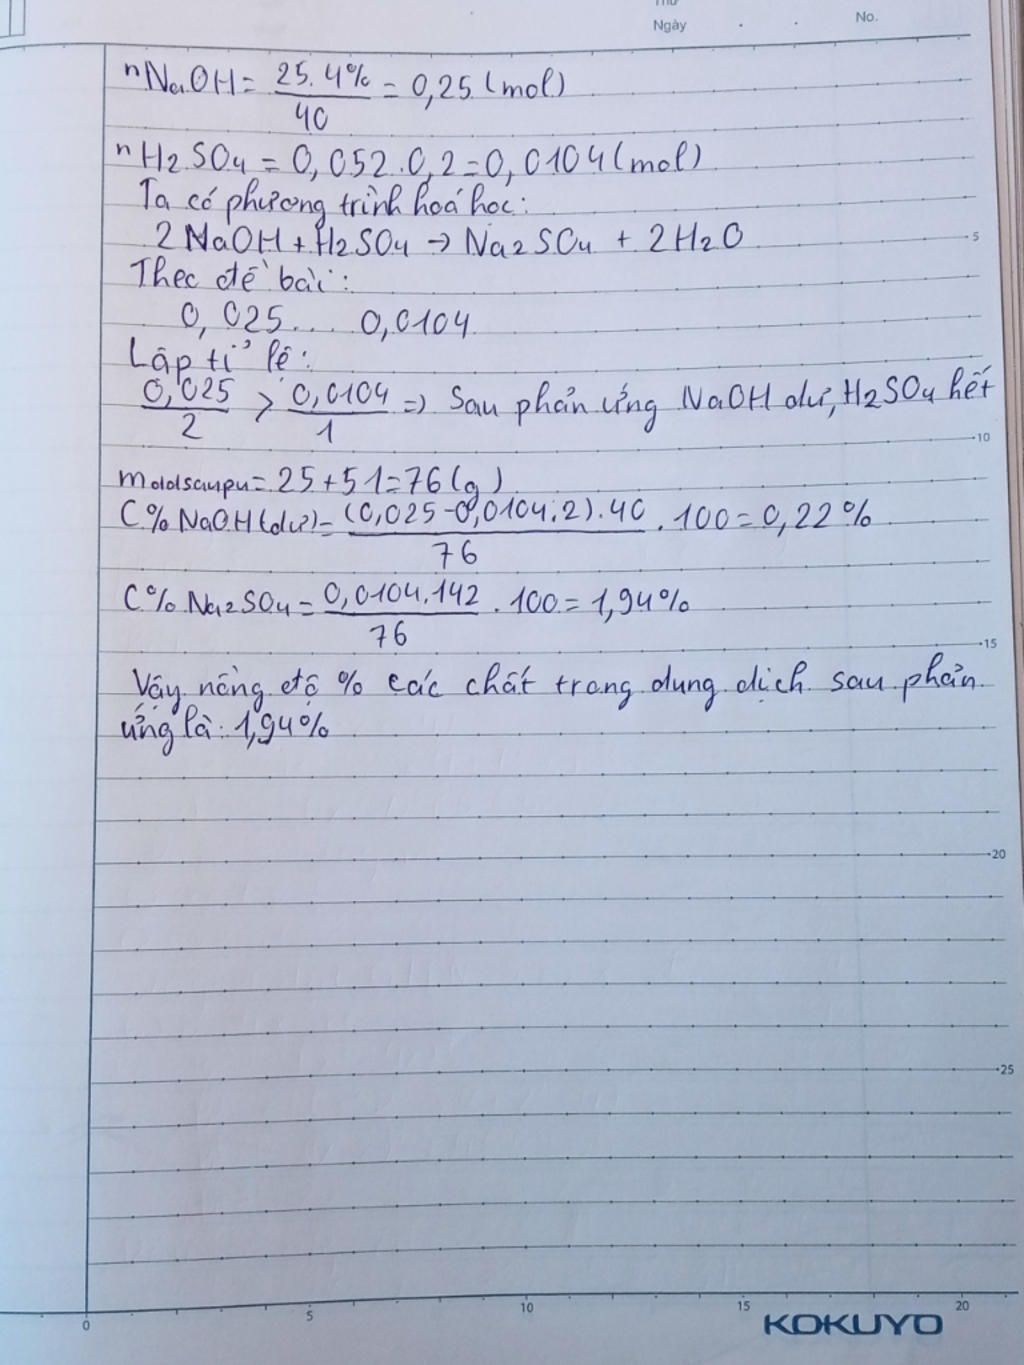 Thứ
Ngày . . No.
nNaOH = 25.4% / 40 = 0,25 (mol)
nH2SO4 = 0,052.0,2 = 0,0104 (mol)
Ta có phương trình hoá học:
2NaOH + H2SO4 → Na2SO4 + 2H2O
5
Theo đề bài:
0,025 .... 0,0104
Lập tỉ lệ:
0,025 / 2 > 0,0104 / 1 => Sau phản ứng NaOH dư, H2SO4 hết
10
mddsaupu = 25 + 51 = 76 (g)
C% NaOH(dư) = (0,025 - 0,0104.2).40 / 76 . 100 = 0,22%
C% Na2SO4 = 0,0104.142 / 76 . 100 = 1,94%
15
Vậy nồng độ % các chất trong dung dịch sau phản
ứng là: 1,94%
20
25
0 5 10 15 20
KOKUYO